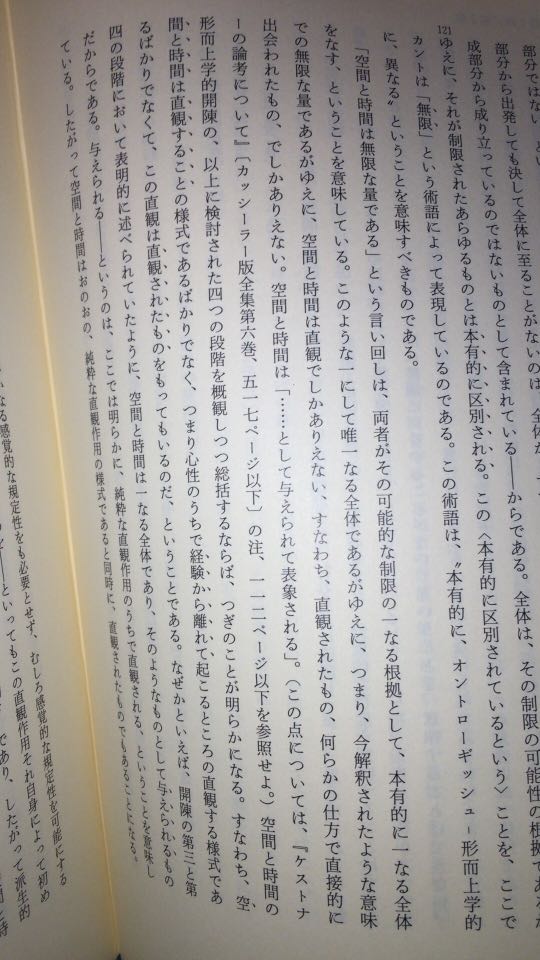 部分ではない
部分から出発しても決して全体に至ることがないのは、全体が
成部分から成り立っているのではないものとして含まれている――からである。全体は、その制限の可能性の根拠である
ゆえに、それが制限されたあらゆるものとは本有的に区別される。この〈本有的に区別されているという〉ことを、ここで
121
カントは「無限」という術語によって表現しているのである。この術語は、〝本有的に、オントローギッシュ−形而上学的
に、異なる〟ということを意味すべきものである。
「空間と時間は無限な量である」という言い回しは、両者がその可能的な制限の一なる根拠として、本有的に一なる全体
をなす、ということを意味している。このような一にして唯一なる全体であるがゆえに、つまり、今解釈されたような意味
での無限な量であるがゆえに、空間と時間は直観でしかありえない、すなわち、直観されたもの、何らかの仕方で直接的に
出会われたもの、でしかありえない。空間と時間は「……として与えられて表象される」。(この点については、『ケストナ
ーの論考について』〔カッシーラー版全集第六巻、五一七ページ以下〕の注、一一二ページ以下を参照せよ。)空間と時間の
形而上学的開陳の、以上に検討された四つの段階を概観しつつ総括するならば、つぎのことが明らかになる。すなわち、空
間と時間は直観することの様式であるばかりでなく、つまり心性のうちで経験から離れて起こるところの直観する様式であ
るばかりでなくて、この直観は直観されたものをもってもいるのだ、ということである。なぜかといえば、開陳の第三と第
四の段階において表明的に述べられていたように、空間と時間は一なる全体であり、そのようなものとして与えられるもの
だからである。与えられる――というのは、ここでは明らかに、純粋な直観作用のうちで直観される、ということを意味し
ている。したがって空間と時間はおのおの、純粋な直観作用の様式であると同時に、直観されたものでもあることになる。
なる感覚的な規定性をも必要とせず、むしろ感覚的な規定性を可能にする
といってもこの直観作用それ自身によって初め
であり、したがって派生的